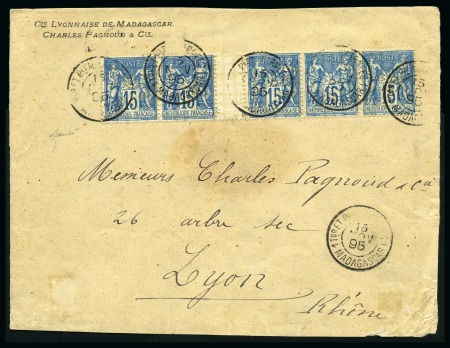 Cie Lyonnaise de Madagascar.
Charles Pagnoud & Cie.
15
15
15
15
REPUBLIQUE FRANCAISE
Messieurs Charles Pagnoud & Cie
26 arbre sec
Lyon
Rhône
15
95
MADAGASCAR